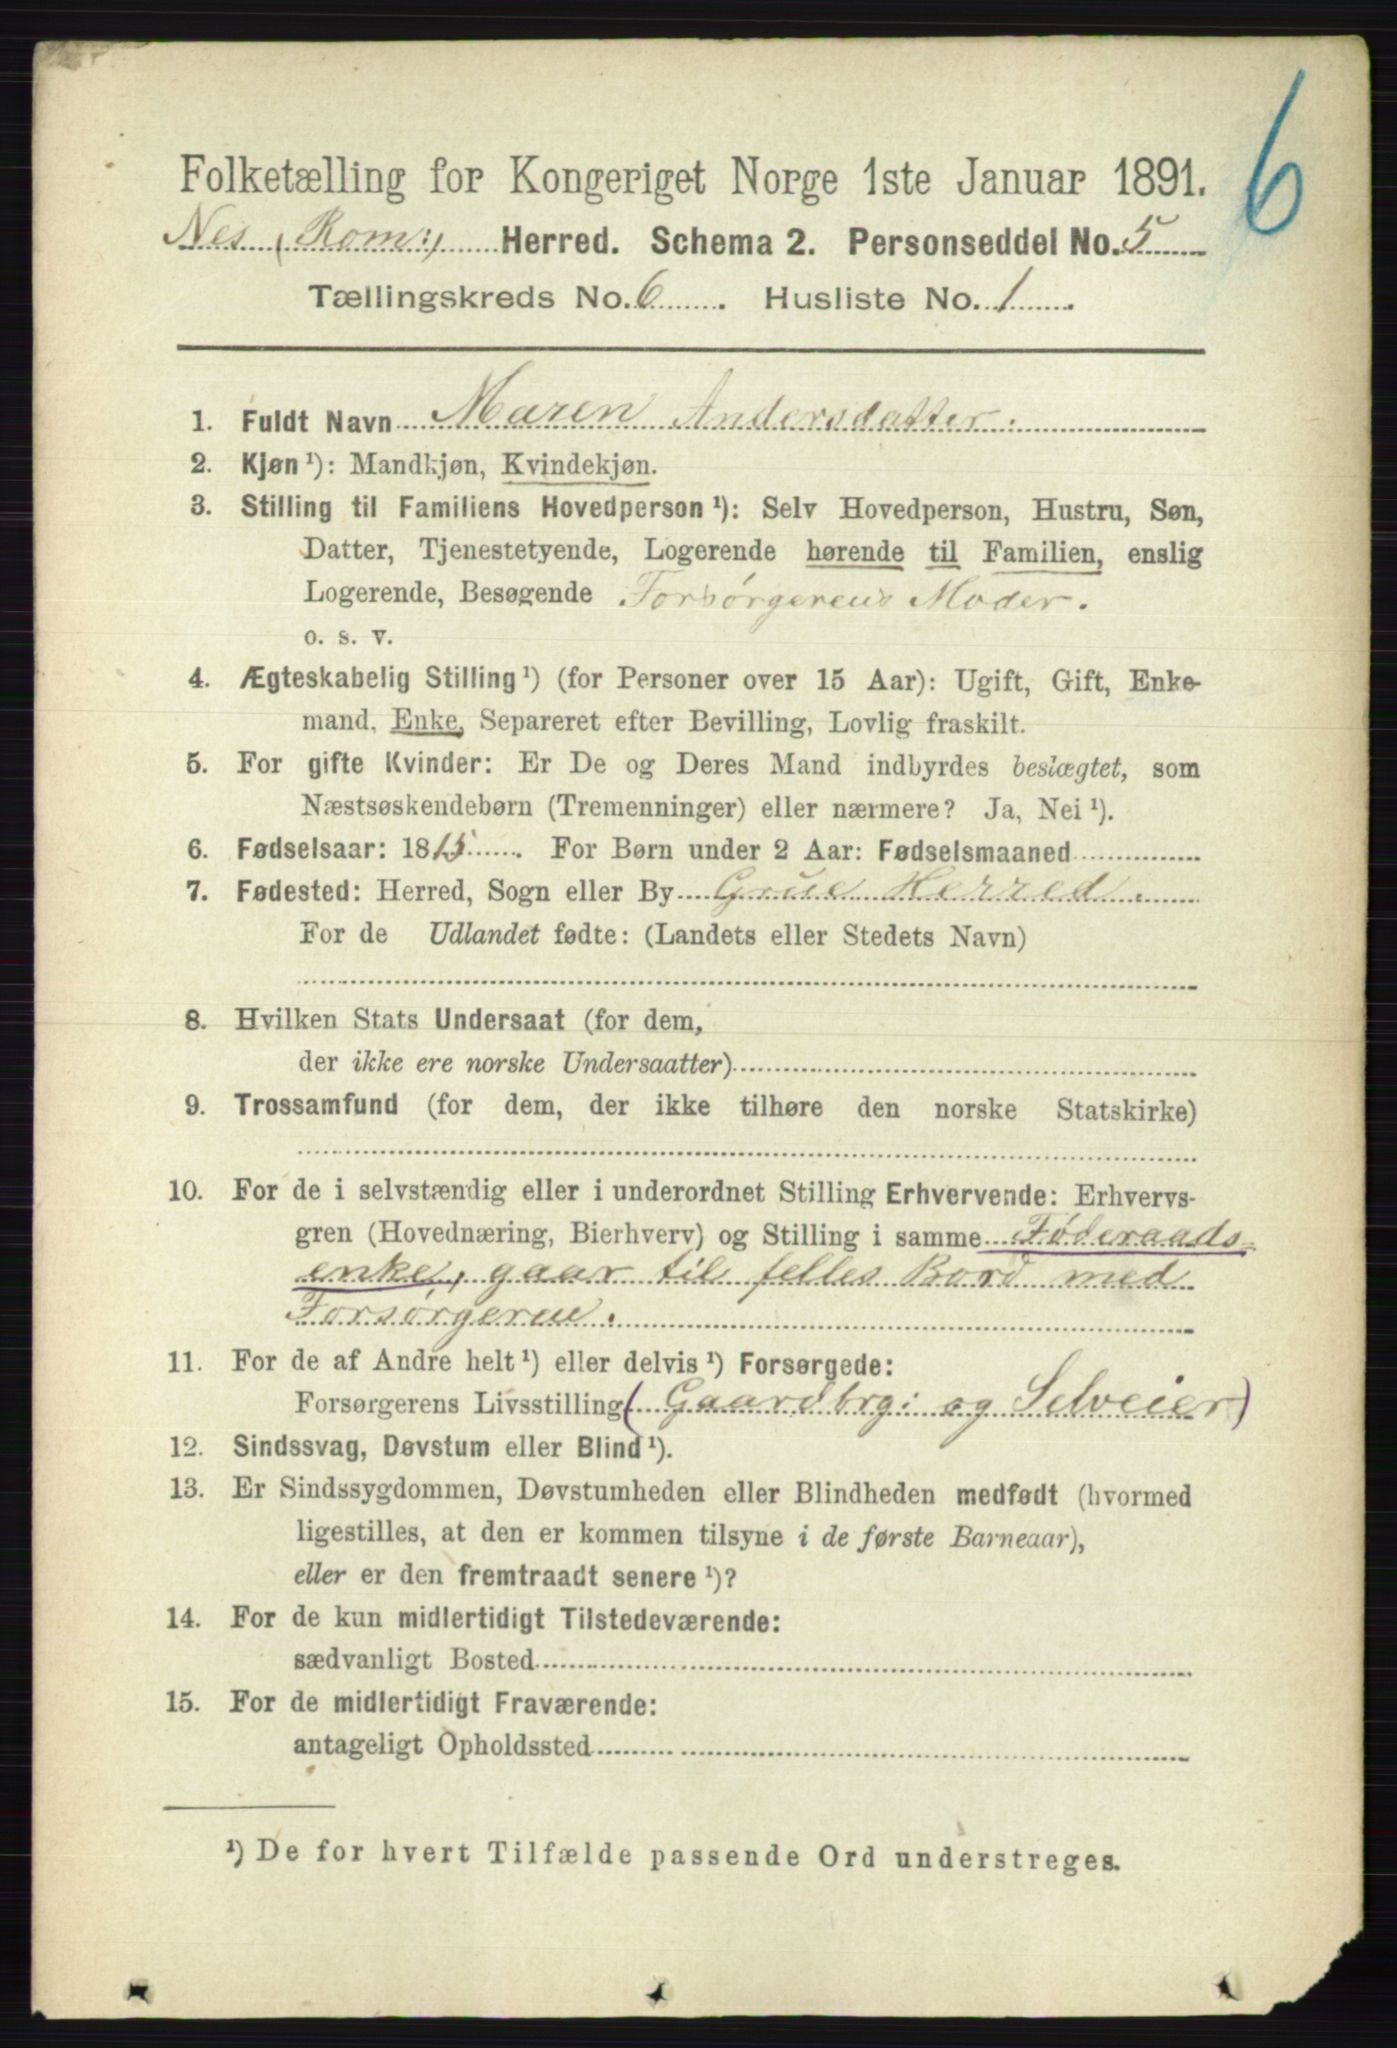 6
Folketælling for Kongeriget Norge 1ste Januar 1891.
Nes (Rom:) Herred. Schema 2. Personseddel No. 5
Tællingskreds No. 6. Husliste No. 1
1. Fuldt Navn Maren Andersdatter.
2. Kjøn ¹): Mandkjøn, Kvindekjøn.
3. Stilling til Familiens Hovedperson ¹): Selv Hovedperson, Hustru, Søn,
Datter, Tjenestetyende, Logerende hørende til Familien, enslig
Logerende, Besøgende Forsørgerens Moder.
o. s. v.
4. Ægteskabelig Stilling ¹) (for Personer over 15 Aar): Ugift, Gift, Enke-
mand, Enke, Separeret efter Bevilling, Lovlig fraskilt.
5. For gifte Kvinder: Er De og Deres Mand indbyrdes beslægtet, som
Næstsøskendebørn (Tremenninger) eller nærmere? Ja, Nei ¹).
6. Fødselsaar: 1815. For Børn under 2 Aar: Fødselsmaaned
7. Fødested: Herred, Sogn eller By Grue Herred.
For de Udlandet fødte: (Landets eller Stedets Navn)
8. Hvilken Stats Undersaat (for dem,
der ikke ere norske Undersaatter)
9. Trossamfund (for dem, der ikke tilhøre den norske Statskirke)
10. For de i selvstændig eller i underordnet Stilling Erhvervende: Erhvervs-
gren (Hovednæring, Bierhverv) og Stilling i samme Føderaads-
enke, gaar til felles Bord med
Forsørgeren.
11. For de af Andre helt ¹) eller delvis ¹) Forsørgede:
Forsørgerens Livsstilling (Gaardbrg: og Selveier)
12. Sindssvag, Døvstum eller Blind ¹).
13. Er Sindssygdommen, Døvstumheden eller Blindheden medfødt (hvormed
ligestilles, at den er kommen tilsyne i de første Barneaar),
eller er den fremtraadt senere ¹)?
14. For de kun midlertidigt Tilstedeværende:
sædvanligt Bosted
15. For de midlertidigt Fraværende:
antageligt Opholdssted
¹) De for hvert Tilfælde passende Ord understreges.